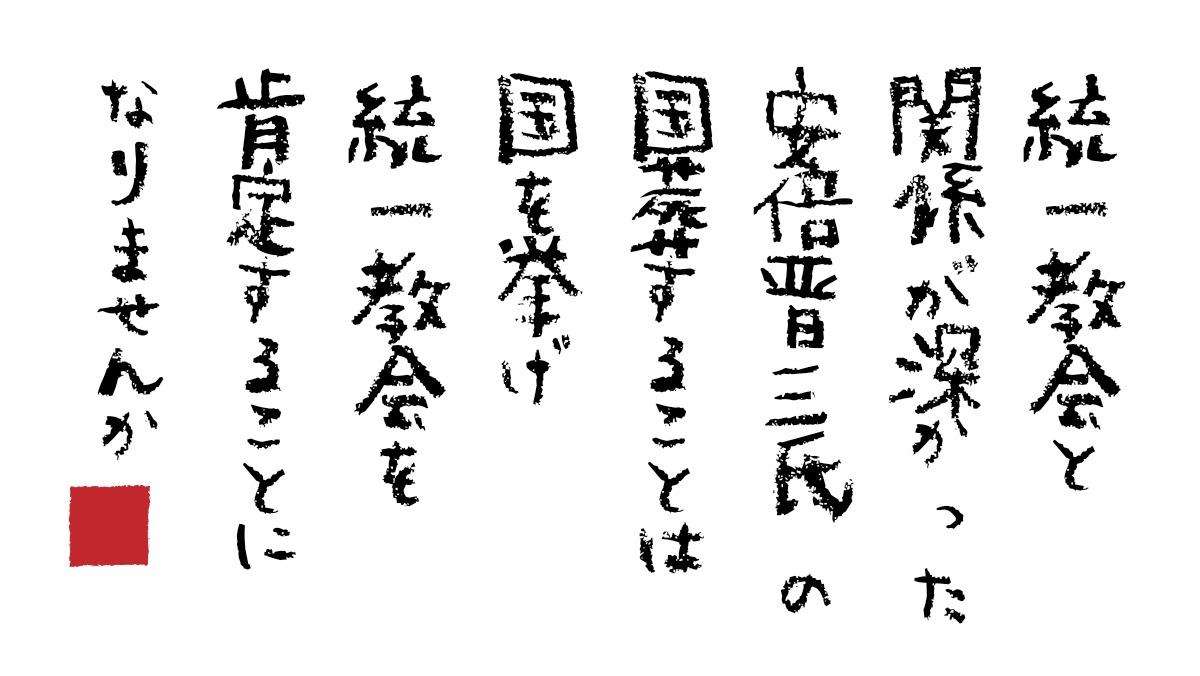 統一教会と
関係が深かった
安倍晋三氏の
国葬することは
国を挙げ
統一教会を
肯定することに
なりませんか